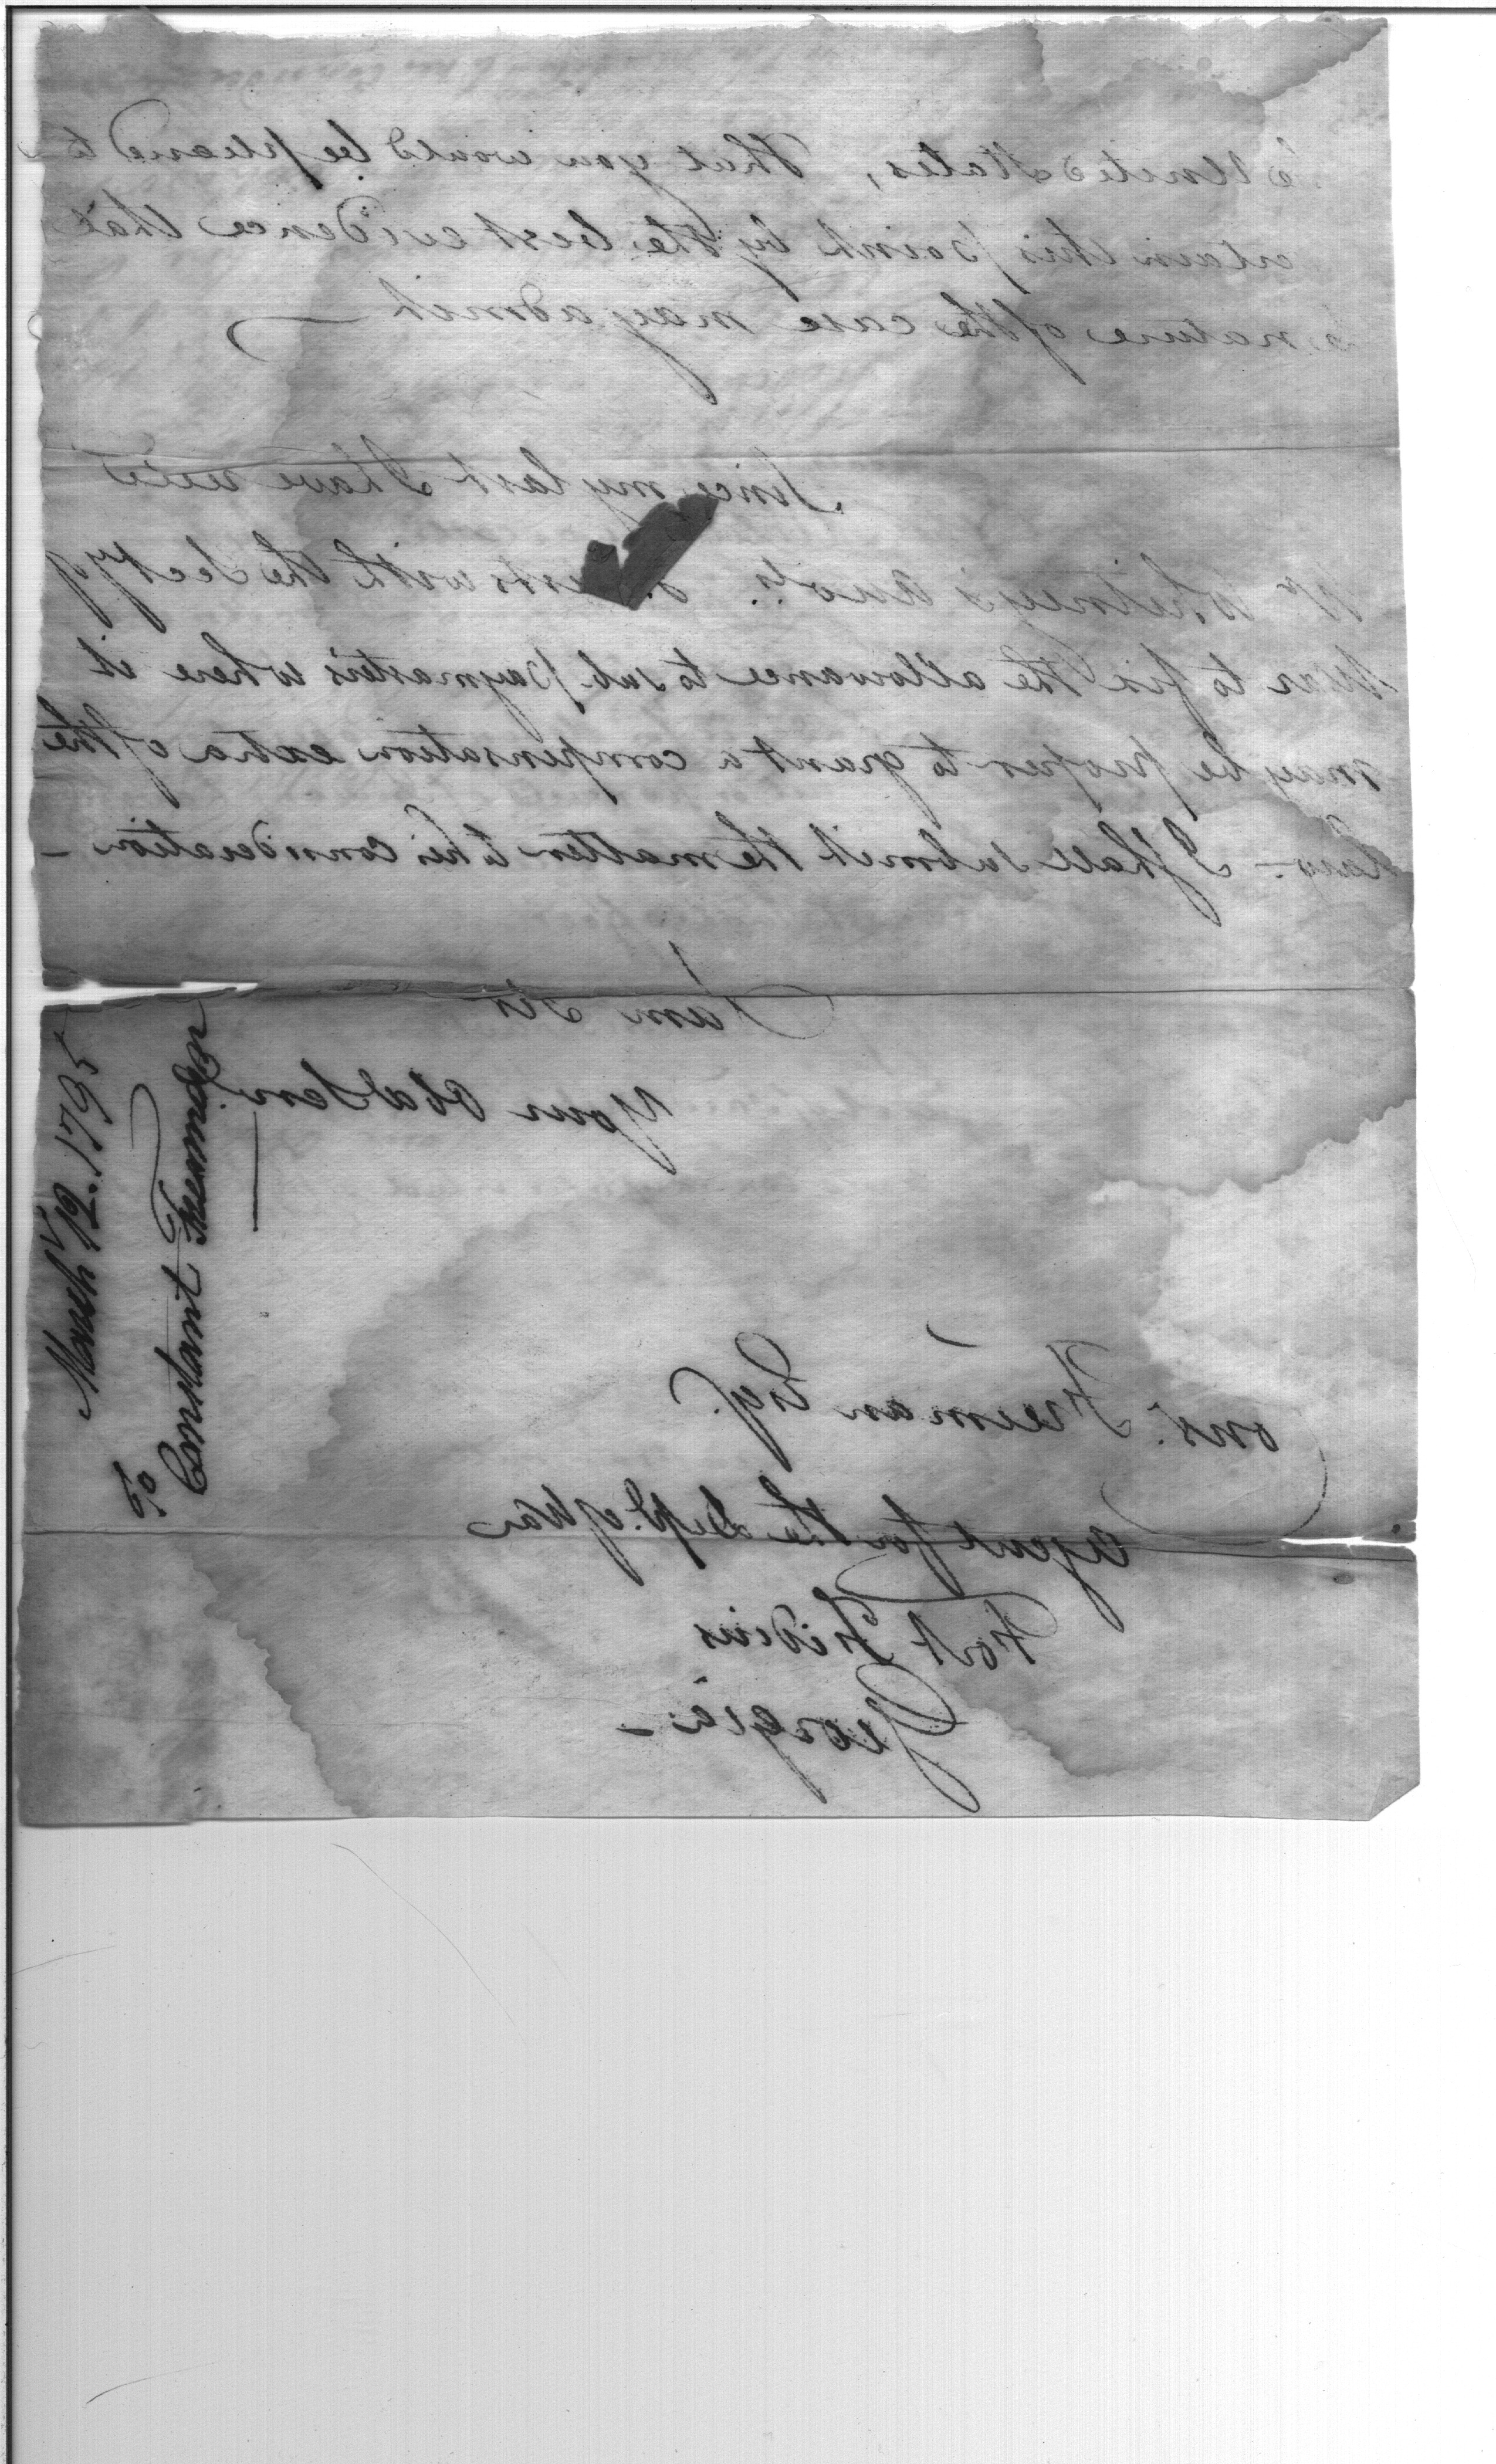 United States, that you would be pleased to
certain this point by the best evidence that
nature of the case may admit —
Since my last I have recd
Mr Whitney's Accots. with the Secty of
War to fix the allowance to sub paymasters where it
may be proper to grant a compensation extra of the
Law — I shall submit the matter to his consideration —
I am Sir
Your Obd Serv
ons. Freeman Esqr.
Agent for the Dept. of War
Fort Fidius
Georgia —
March 12. 1795
To
Constant Freeman